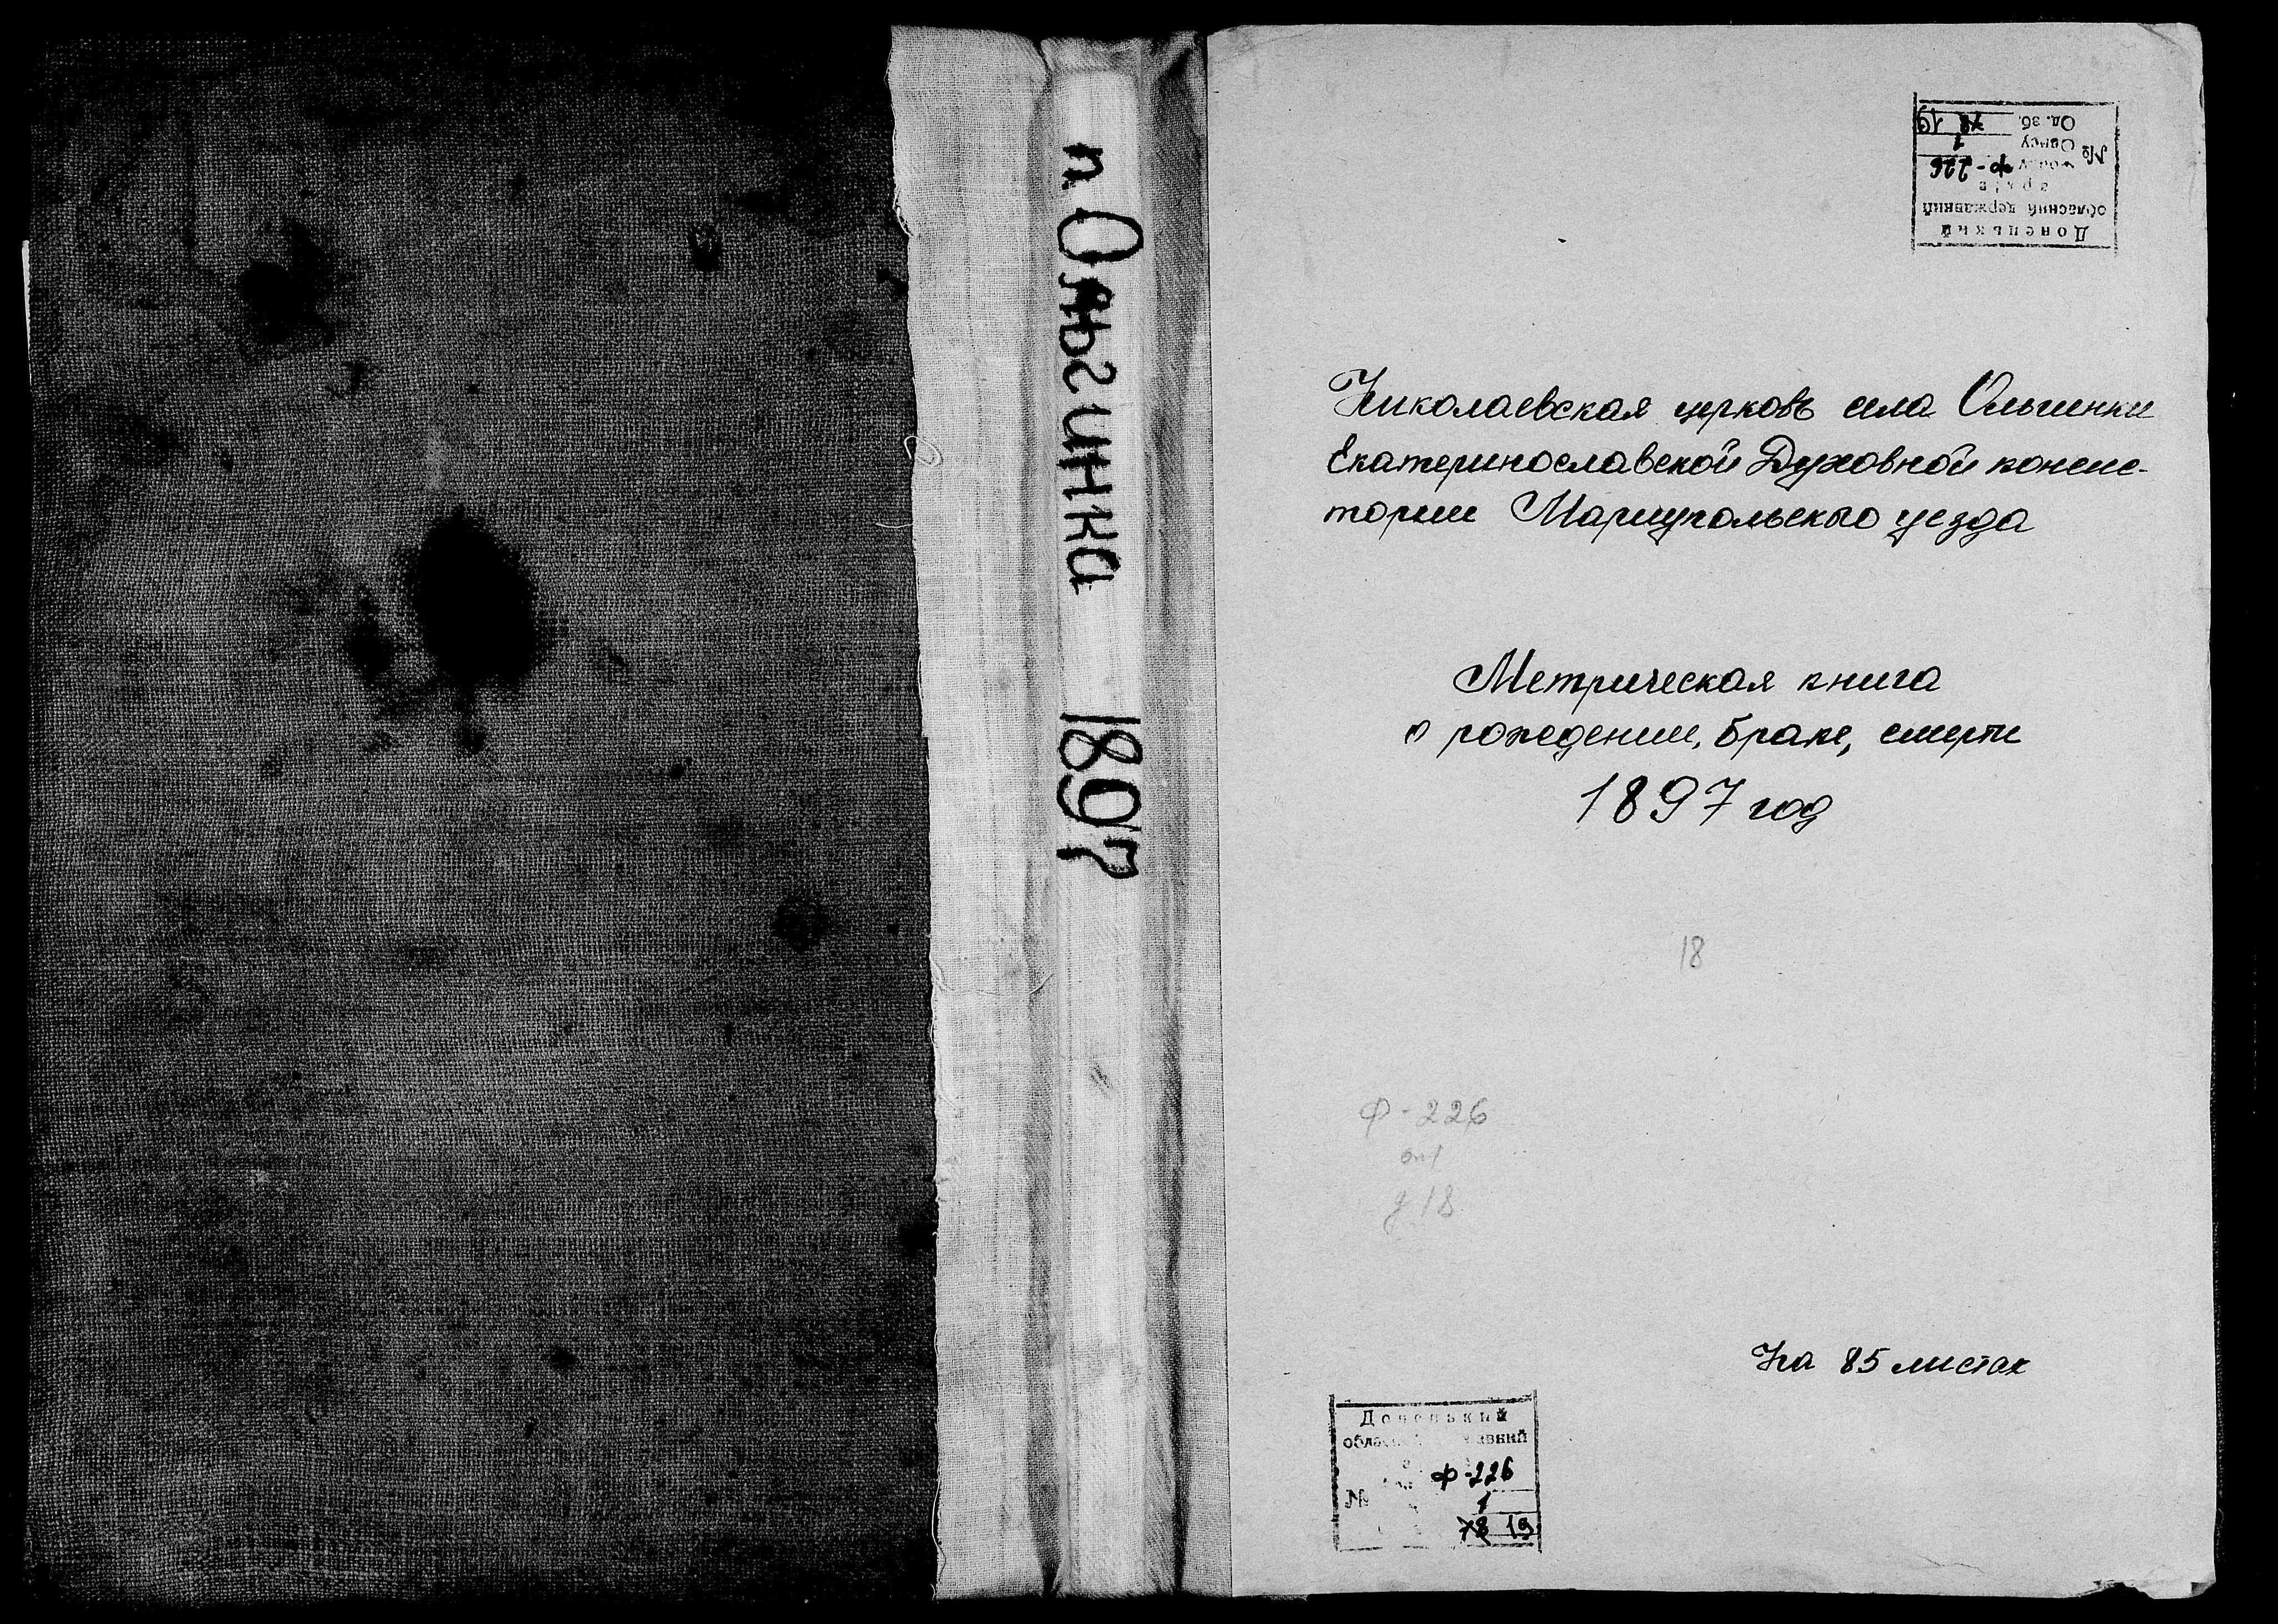 п. Ольгинка 1897
Донецький
обласний державний
архів
№ Фонду Ф-226
Опису 1
Од. зб. 78 19
Николаевская церковь села Ольгинки
Екатеринославской Духовной консис-
тории Мариупольского уезда
Метрическая книга
о рождении, браке, смерти
1897 год
18
Ф-226
оп1
д 18
На 85 листах
Донецький
Ф-226
№ 1
78 19